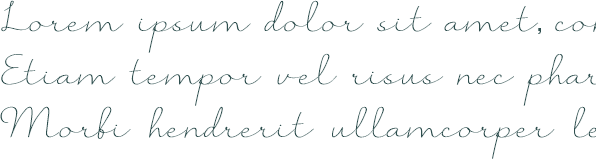 Lorem ipsum dolor sit amet, con
Etiam tempor vel risus nec phar
Morbi hendrerit ullamcorper le